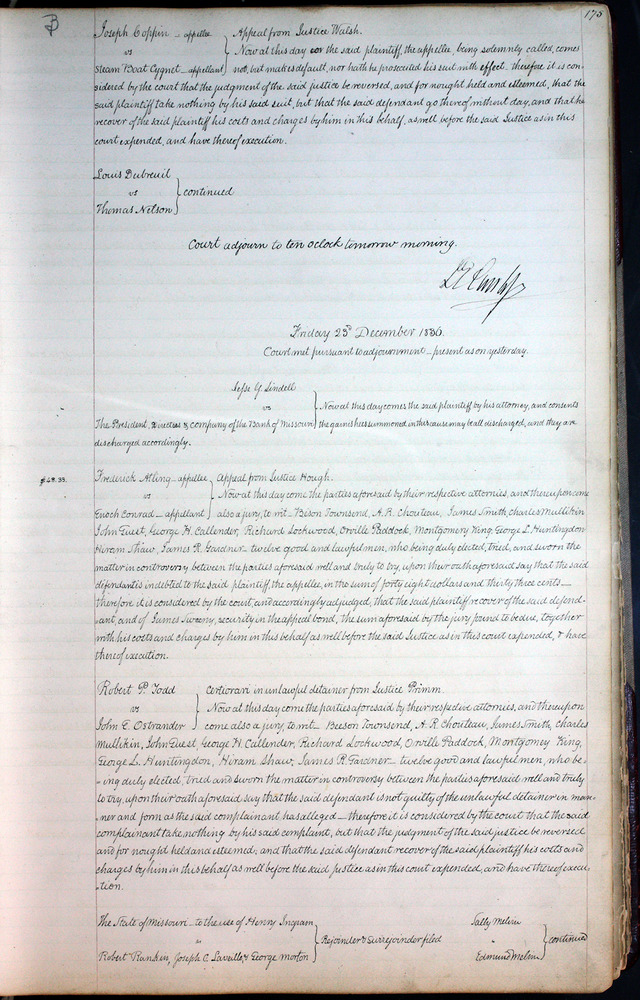 175
Joseph Coppin – appellee } Appeal from Justice Walsh.
vs } Now at this day cor the said plaintiff, the appellee being solemnly called, comes
Steam Boat Cygnet – appellant } not, but makes default, nor hath he prosecuted his suit with effect. therefore it is con-
sidered by the court that the judgment of the said justice be reversed, and for nought held and esteemed, that the
said plaintiff take nothing by his said suit, but that the said defendant go thereof without day, and that he
recover of the said plaintiff his costs and charges by him in this behalf, as well before the said Justice as in this
court expended, and have thereof execution.
Louis Dubreuil
vs } continued
Thomas Nelson
Court adjourn to ten oclock tomorrow morning.
Friday 23d December 1836.
Court met pursuant to adjournment – present as on yesterday.
Jesse G. Lindell
vs } Now at this day comes the said plaintiff by his attorney, and consents
The President, Directors & company of the Bank of Missouri } the garnishees summoned in this cause may be all discharged, and they are
discharged accordingly.
$48.33. Frederick Atling – appellee } Appeal from Justice Hough.
vs } Now at this day come the parties aforesaid by their respective attornies, and thereupon come
Enoch Conrad – appellant } also a jury, to wit – Beson Townsend, A. R. Chouteau, James Smith, Charles Mullikin
John Guest, George H. Callender, Richard Lockwood, Orville Paddock, Montgomery King, George L. Huntingdon
Hiram Shaw, James R. Gardner – twelve good and lawful men, who being duly elected, tried, and sworn the
matter in controversy between the parties aforesaid well and truly to try, upon their oath aforesaid say that the said
defendant is indebted to the said plaintiff, the appellee, in the sum of forty eight dollars and thirty three cents –
therefore it is considered by the court, and accordingly adjudged, that the said plaintiff recover of the said defend-
ant, and of James Sweeny, security in the appeal bond, the sum aforesaid by the jury found to be due, together
with his costs and charges by him in this behalf as well before the said Justice as in this court expended, & have
thereof execution.
Robert P. Todd } Certiorari in unlawful detainer from Justice Primm.
vs } Now at this day come the parties aforesaid by their respective attornies, and thereupon
John E. Ostrander } come also a jury, to wit – Beeson Townsend, A. R. Chouteau, James Smith, Charles
Mullikin, John Guest, George H. Callender, Richard Lockwood, Orville Paddock, Montgomey King,
George L. Huntingdon, Hiram Shaw, James R. Gardner – twelve good and lawful men, who be-
ing duly elected, tried and sworn the matter in controversy between the parties aforesaid well and truly
to try, upon their oath aforesaid say that the said defendant is not guilty of the unlawful detainer in man-
ner and form as the said complainant has alleged – therefore it is considered by the court that the said
complainant take nothing by his said complaint, but that the judgment of the said justice be reversed
and for nought held and esteemed; and that the said defendant recover of the said plaintiff his costs and
charges by him in this behalf as well before the said justice as in this court expended, and have thereof execu-
tion.
The State of Missouri – to the use of Henry Ingram
vs } Rejoinder & surrejoinder filed
Robert Rankin, Joseph C. Laveille & George Morton
Sally Melvin
" } continued
Edmund Melvin